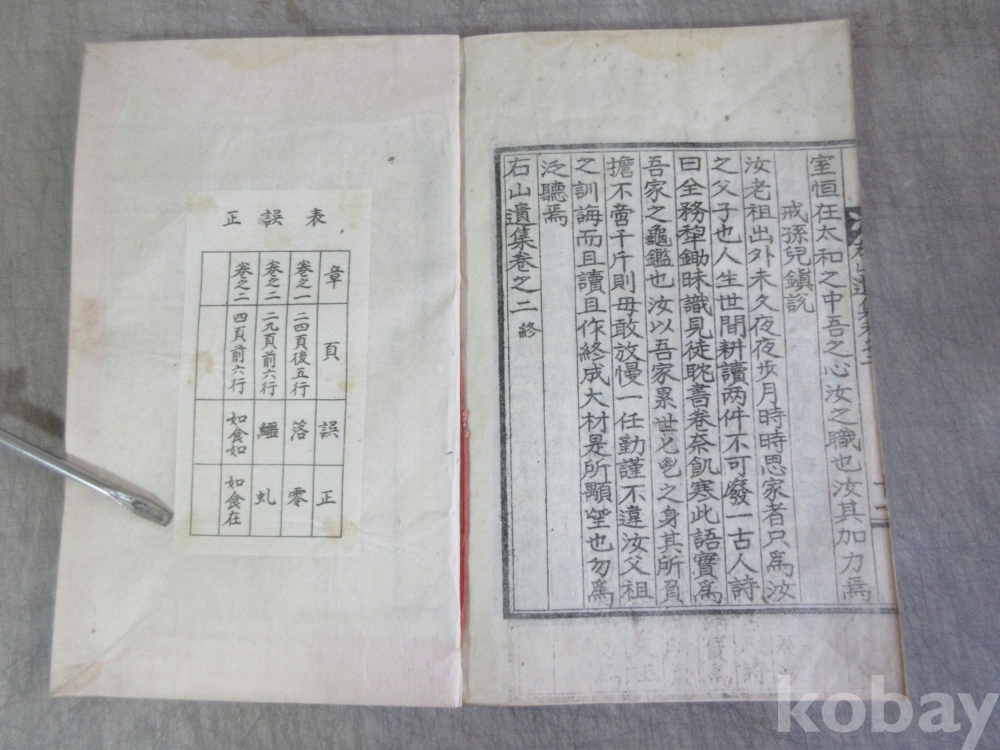 室恒在太和之中吾之心汝之職也汝其加力焉
戒孫兒鎭說
汝老祖出外未久夜夜步月時時思家者只爲汝
之父子也人生世間耕讀两件不可廢一古人詩
曰全務犂鋤昧識見徒眈書卷奈飢寒此語實爲
吾家之龜鑑也汝以吾家累世之身其所負
擔不啻千斤則毋敢放慢一任勤謹不違汝父祖
之訓誨而且讀且作終成大材是所顒望也勿爲
泛聽焉
右山遺集卷之二 終
正誤表
章 頁 誤 正
卷之一 二四頁後五行 落 零
卷之二 二九頁前六行 鱷 虬
卷之二 四頁前六行 如食如 如食在
kobay